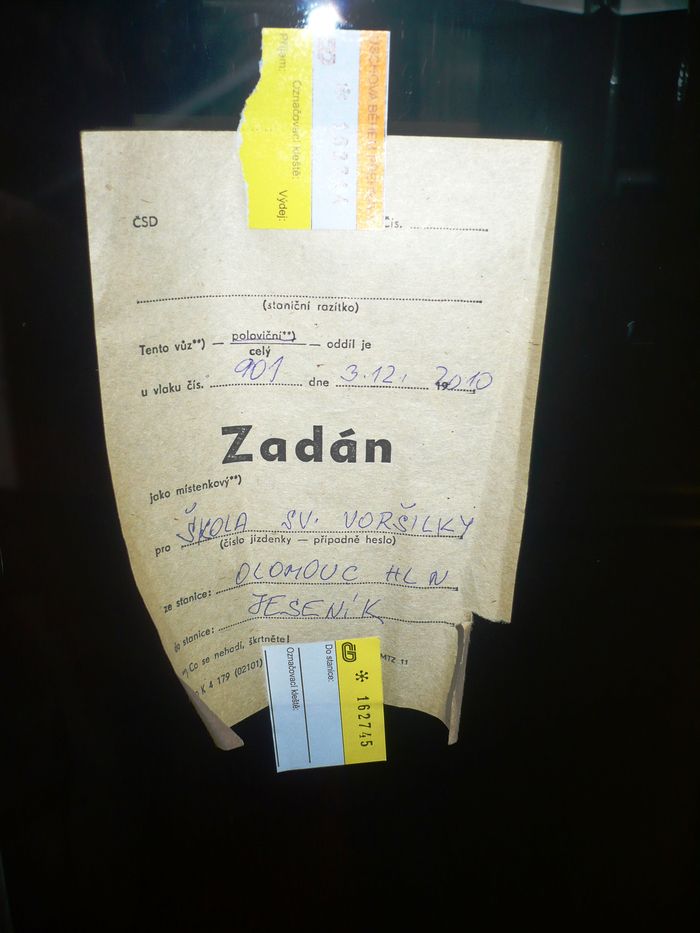 Příjem:
Označovací kleště:
Výdej:
ČSD
čís.
(staniční razítko)
Tento vůz**) — poloviční**) — oddíl je
celý
u vlaku čís. 901 dne 3.12. 192010
Zadán
jako místenkový**)
pro ŠKOLA SV. VORŠILKY
(číslo jízdenky — případně heslo)
ze stanice: OLOMOUC HL N
do stanice: JESENÍK
*) Co se nehodí, škrtněte!
K 4 179 (02101)
MTZ 11
Do stanice:
Označovací kleště:
ČD * 162745